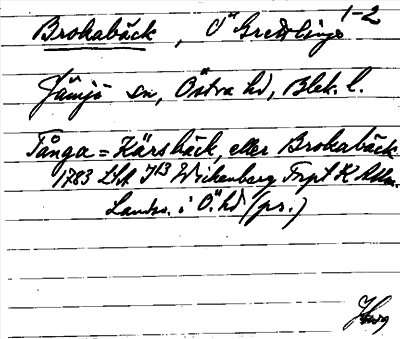 1-2
Brokabäck, V Gredeby
Jämjö sn, Östra hd, Blek. l.
Tånga = Kärsbäck, eller Brokabäck
1783 LSA J13 Wickenberg Frpt K Allm.
Landsv. i Ö. hd (pr.)